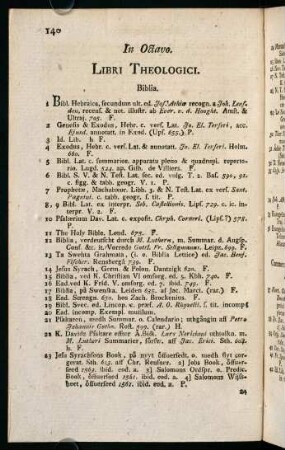 140
In Octavo.
LIBRI THEOLOGICI.
Biblia.
1 Bibl. Hebraica, secundum ult. ed. Jos. Athiæ recogn. a Joh. Leus-
den, recens. & not. illustr. ab Ever. v. d. Hooght. Amst. &
Ultraj. 705. F.
2 Genesis & Exodus, Hebr. c. vers. Lat. Jo. El. Terseri, acc.
annotatt. in Fœd. (Upf. 655.) P.
3 Id. Lib. h. F.
4 Exodus, Hebr. c. vers. Lat. & annotatt. Jo. El. Terseri. Holm.
F.
5 Bibl. Lat. c. summarior. apparatu pleno & quadrupl. reperto-
rio. Lugd. ap. Gisb. de Villiers. F.
6 Bibl. N. V. & N. Test. Lat. sec. ed. vulg. T. 2. Bas.
c. figg. & tabb. geogr. V. 1. P.
7 Prophetæ, Machabæor. Libb. 3. & N. Test. Lat. ex vers. Sant.
Pagnini. c. tabb. geogr. l. tit. P.
8, 9 Bibl. Lat. ex interpr. Seb. Castellionis. Lips. 729. c. ic. in-
terpr. V. 2. F.
10 Psalterium Dav. Lat. c. exposit. Chryst. Corneri. (Lips.?) 578.
P.
11 The Holy Bible. Lond. 675. F.
12 Biblia, verdeutscht durch M. Luthern, m. Summar. d. Augsp.
Conf. &c. it. Vorrede Gottl. Fr. Seligmanns. Leipz. 699. F.
13 Ta Swehta Grahmata, (i. e. Biblia Lettice) ed. Jac. Benj.
Fischer. Kœnisberg 739. F.
14 Jesus Syrach, Germ. & Polon. Dantzigk 620. F.
15 Biblia, ved K. Christian VI omsorg, ed. 5. Kbhv. 740. F.
16 End. ved K. Fred. V. omsorg, ed. 7. ibid. F.
17 Biblia, på Svenska. Leiden 633. af Jac. March. (rar.) F.
18 End. Strengn. 650. hos Zach. Brockenius. F.
19 Bibl. Svec. ed. Lincop. w. præf. A. O. Rhyzelii. l. tit. incompl.
20 End. incomp. Exempl. mutilum.
21 Psaltaren, medh Summar. o. Calendario; uthgångin aff Petro
Johannis Gotho. Rost. 599. (rar.) H.
22 K. Davids Psaltare effter A. Bok. Lars Norlchinds uthtolkn. m.
M. Lutheri Summarier, förfer. aff Jac. Erici. Sth. 608.
h. F.
23 Jesu Syrachsens Book, på nytt öffuerseth, o. medh flyt cor-
gerat. Sth. 613. aff Chr. Reusner. 2) Jobs Book, öffuer-
seed 1561. ibid. eod. a. 3) Salomons Ordspr. o. Predic.
Book, öffuerseed 1561. ibid. eod. a. 4) Salomons Wijss-
heet, öffuerseed 1561. ibid. eod. a. P.
24